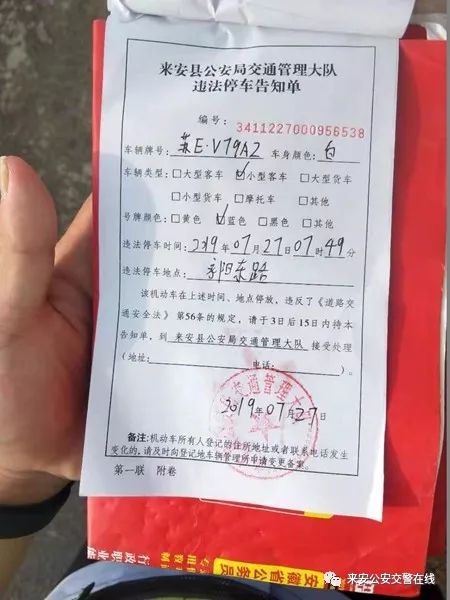 来安县公安局交通管理大队
违法停车告知单
编号:3411227000956538
车辆牌号:苏E·V79A2 车身颜色:白
车辆类型:□大型客车 ☑小型客车 □大型货车
□小型货车 □摩托车 □其他
号牌颜色:□黄色 ☑蓝色 □黑色 □其他
违法停车时间:2019年07月27日07时49分
违法停车地点:东路
该机动车在上述时间、地点停放,违反了《道路交
通安全法》第56条的规定,请于3日后15日内持本
告知单,到 来安县公安局交通管理大队 接受处理
(地址: 电话: )。
交通管理大
2019年07月27日
备注:机动车所有人登记的住所地址或者联系电话发生
变化的,请及时向登记地车辆管理所申请变更备案。
第一联 附卷
安徽省公务员
行政职业能
来安公安交警在线